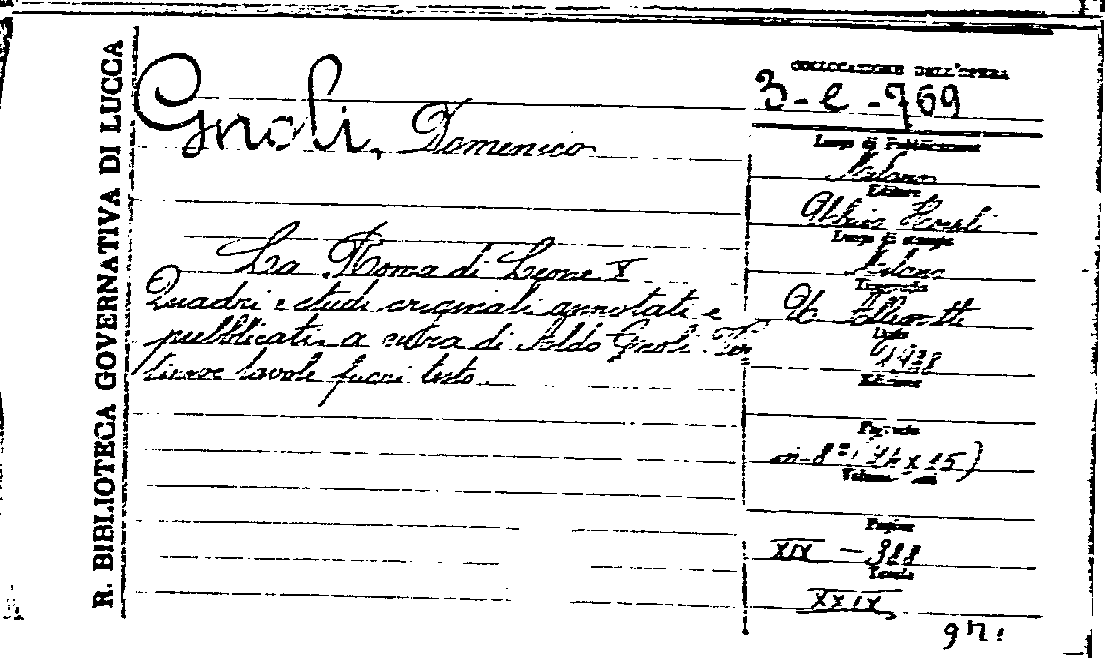 R. BIBLIOTECA GOVERNATIVA DI LUCCA
Gnoli, Domenico
La Roma di Leone X
Quadri e studi originali annotati e
pubblicati a cura di Aldo Gnoli.
tavole fuori testo.
COLLOCAZIONE DELL'OPERA
3-e-769
Luogo di Pubblicazione
Milano
Editore
Ulrico Hoepli
Luogo di stampa
Milano
Tipografia
U. Allegretti
Data
1938
Edizione
Formato
in-8° (24 x 15)
Volume
Pagine
XIX - 388
Tavole
XXIX